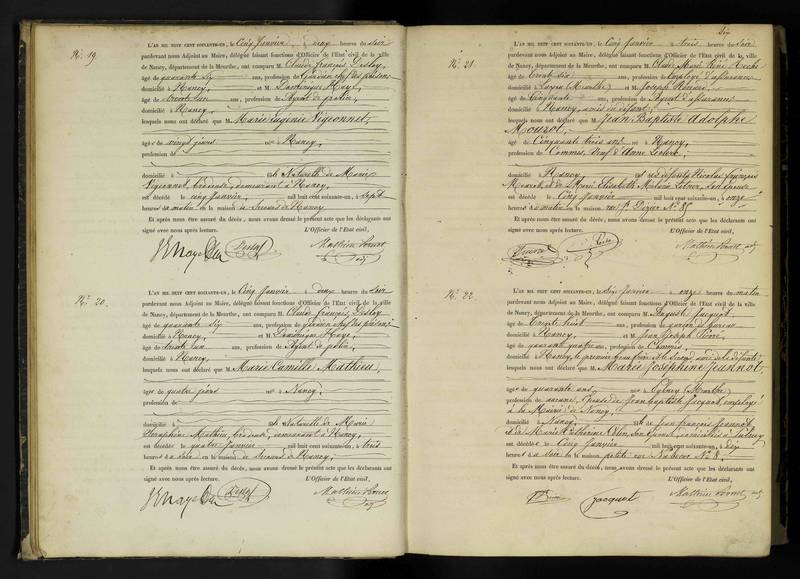 N.º 19
L'AN MIL HUIT CENT SOIXANTE-UN, le Cinq Janvier à deux heures du Soir
pardevant nous Adjoint au Maire, délégué faisant fonctions d'Officier de l'Etat civil de la ville
de Nancy, département de la Meurthe, ont comparu M. Claude François Deslay
âgé de quarante six ans, profession de Gardien chef des prisons
domicilié à Nancy, et M. Dominique Haye
âgé de trente un ans, profession de Agent de police,
domicilié à Nancy,
lesquels nous ont déclaré que M. Marie Eugénie Vigeonnet,
âgée de vingt jours né à Nancy,
profession de
domicilié à et fille Naturelle de Marie
Vigeonnet, brodeuse, demeurant à Nancy,
est décédée le cinq Janvier, mil huit cent soixante-un, à sept
heures du matin en la maison de Secours de Nancy
Et après nous être assuré du décès, nous avons dressé le présent acte que les déclarants ont
signé avec nous après lecture. L'Officier de l'Etat civil,
N.º 20
L'AN MIL HUIT CENT SOIXANTE-UN, le Cinq Janvier à deux heures du Soir
pardevant nous Adjoint au Maire, délégué faisant fonctions d'Officier de l'Etat civil de la ville
de Nancy, département de la Meurthe, ont comparu M. Claude François Deslay
âgé de quarante six ans, profession de Gardien chef des prisons
domicilié à Nancy, et M. Dominique Haye,
âgé de trente un ans, profession de Agent de police,
domicilié à Nancy,
lesquels nous ont déclaré que M. Marie Camille Mathieu,
âgée de quatre jours né à Nancy,
profession de
domicilié à et fille Naturelle de Marie
Séraphine Mathieu, brodeuse, demeurant à Nancy,
est décédée le quatre Janvier mil huit cent soixante-un, à trois
heures du soir en la maison de Secours de Nancy,
Et après nous être assuré du décès, nous avons dressé le présent acte que les déclarants ont
signé avec nous après lecture. L'Officier de l'Etat civil,
Six
N.º 21
L'AN MIL HUIT CENT SOIXANTE-UN, le Cinq Janvier à trois heures du Soir
pardevant nous Adjoint au Maire, délégué faisant fonctions d'Officier de l'Etat civil de la ville
de Nancy, département de la Meurthe, ont comparu M. Claude Marie René
âgé de trente six ans, profession de Employé d'assurances
domicilié à (Meurthe) et M. Joseph
âgé de Cinquante ans, profession de Agent d'assurances
domicilié à Nancy, amis du défunt,
lesquels nous ont déclaré que M. Jean Baptiste Adolphe
Mourot,
âgé de Cinquante trois ans né à Nancy,
profession de Commis, Veuf d'Anne Leclerc,
domicilié à Nancy, et fils de défunts Nicolas François
Mourot, et de Marie Elisabeth son épouse
est décédé le Cinq Janvier mil huit cent soixante-un, à onze
heures du matin en la maison rue St. Dizier N.º 87
Et après nous être assuré du décès, nous avons dressé le présent acte que les déclarants ont
signé avec nous après lecture. L'Officier de l'Etat civil,
N.º 22
L'AN MIL HUIT CENT SOIXANTE-UN, le Six Janvier à onze heures du matin
pardevant nous Adjoint au Maire, délégué faisant fonctions d'Officier de l'Etat civil de la ville
de Nancy, département de la Meurthe, ont comparu M. Auguste Jacquot
âgé de trente huit ans, profession de garçon de bureau
domicilié à Nancy, et M. Jean Joseph
âgé de quarante quatre ans, profession de Commis,
domicilié à Nancy, le premier beau frère et le second ami de la défunte,
lesquels nous ont déclaré que M. Marie Joséphine Jeannot,
âgée de quarante ans, née à (Meurthe)
profession de épouse de Jean Baptiste Jacquot, employé
à la Mairie de Nancy,
domiciliée à Nancy, et fille de Jean François Jeannot,
et de Marie Catherine son épouse,
est décédée le Cinq Janvier mil huit cent soixante-un, à dix
heures du Soir en la maison petite rue N.º 8,
Et après nous être assuré du décès, nous avons dressé le présent acte que les déclarants ont
signé avec nous après lecture. L'Officier de l'Etat civil,
Jacquot